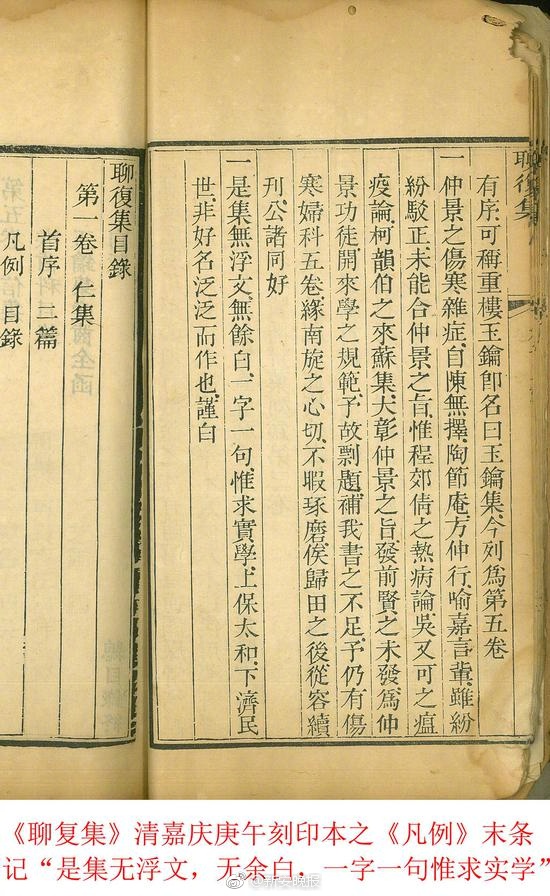 有序可稱重樓玉鑰即名曰玉鑰集今列爲第五卷
一仲景之傷寒雜症自陳無擇陶節庵方仲行喻嘉言輩雖紛
紛駁正未能合仲景之旨惟程郊倩之熱病論吳又可之瘟
疫論柯韻伯之來蘇集大彰仲景之旨發前賢之未發爲仲
景功徒開來學之規範予故剽題補我書之不足予仍有傷
寒婦科五卷緣南旋之心切不暇琢磨俟歸田之後從容續
刊公諸同好
一是集無浮文無餘白一字一句惟求實學上保太和下濟民
世非好名泛泛而作也謹白
聊復集目錄
第一卷 仁集
首序 二篇
凡例 目錄
聊復集
《聊复集》清嘉庆庚午刻印本之《凡例》末条
记“是集无浮文，无余白，一字一句惟求实学”
@新安晚报